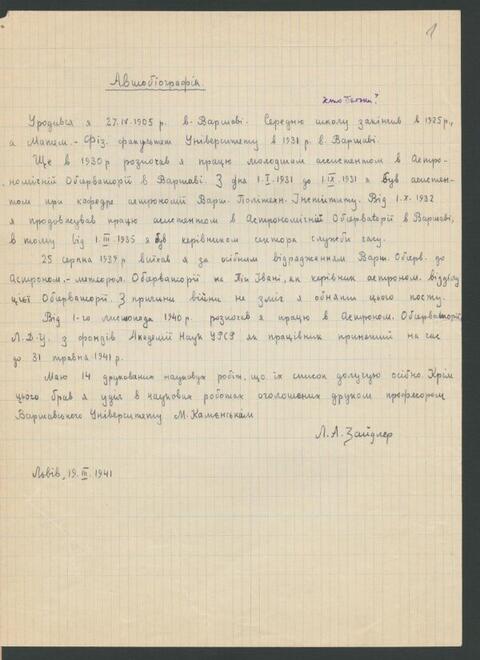 1
Автобіографія.
Уродився я 27.IV.1905 р. в. Варшаві. Середню школу закінчив в 1925 р.,
а Матем.-Фіз. факультет Університету в 1931 р. в. Варшаві.
Ще в 1930 р розпочав я працю молодшим асистентом в Астро-
номічній Обсерваторії в Варшаві. З дня 1.I.1931 до 1.IX.1931 я був асистен-
том при кафедрі астрономії Варш. Політехн. Інституту. Від 1.X.1932
я продовжував працю асистентом в Астрономічній Обсерваторії в Варшаві,
в тому від 1.III.1935 я був керівником сектора служби часу.
25 серпня 1939 р виїхав я за осібним відрядженням Варш. Обсерв. до
Астроном.-метеорол. Обсерваторії на Піп Івані, як керівник астроном. відділу
цієї Обсерваторії. З причини війни не зміг я обняти цього посту.
Від 1-го листопада 1940 р. розпочав я працю в Астроном. Обсерваторії
Л.Д.У. з фондів Академії Наук УРСР як працівник принятий на час
до 31 травня 1941 р.
Маю 14 друкованих наукових робіт, що їх список долучую осібно. Крім
цього брав я участь в наукових роботах оголошених друком професором
Варшавського Університету М. Каменьскім
Л. А. Зайдлер
Львів, 19.III.1941